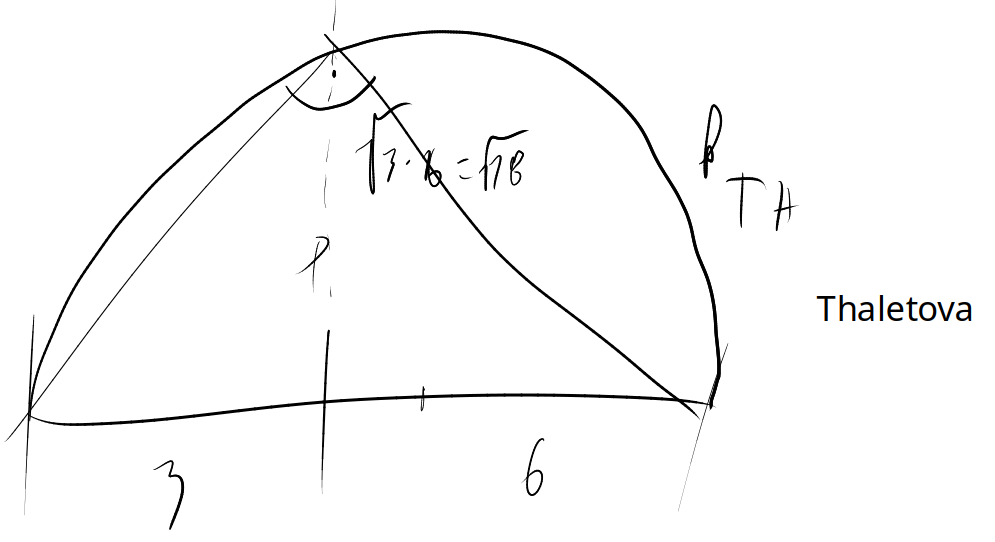 √3·6=√18
TH
P
Thaletova
3
6